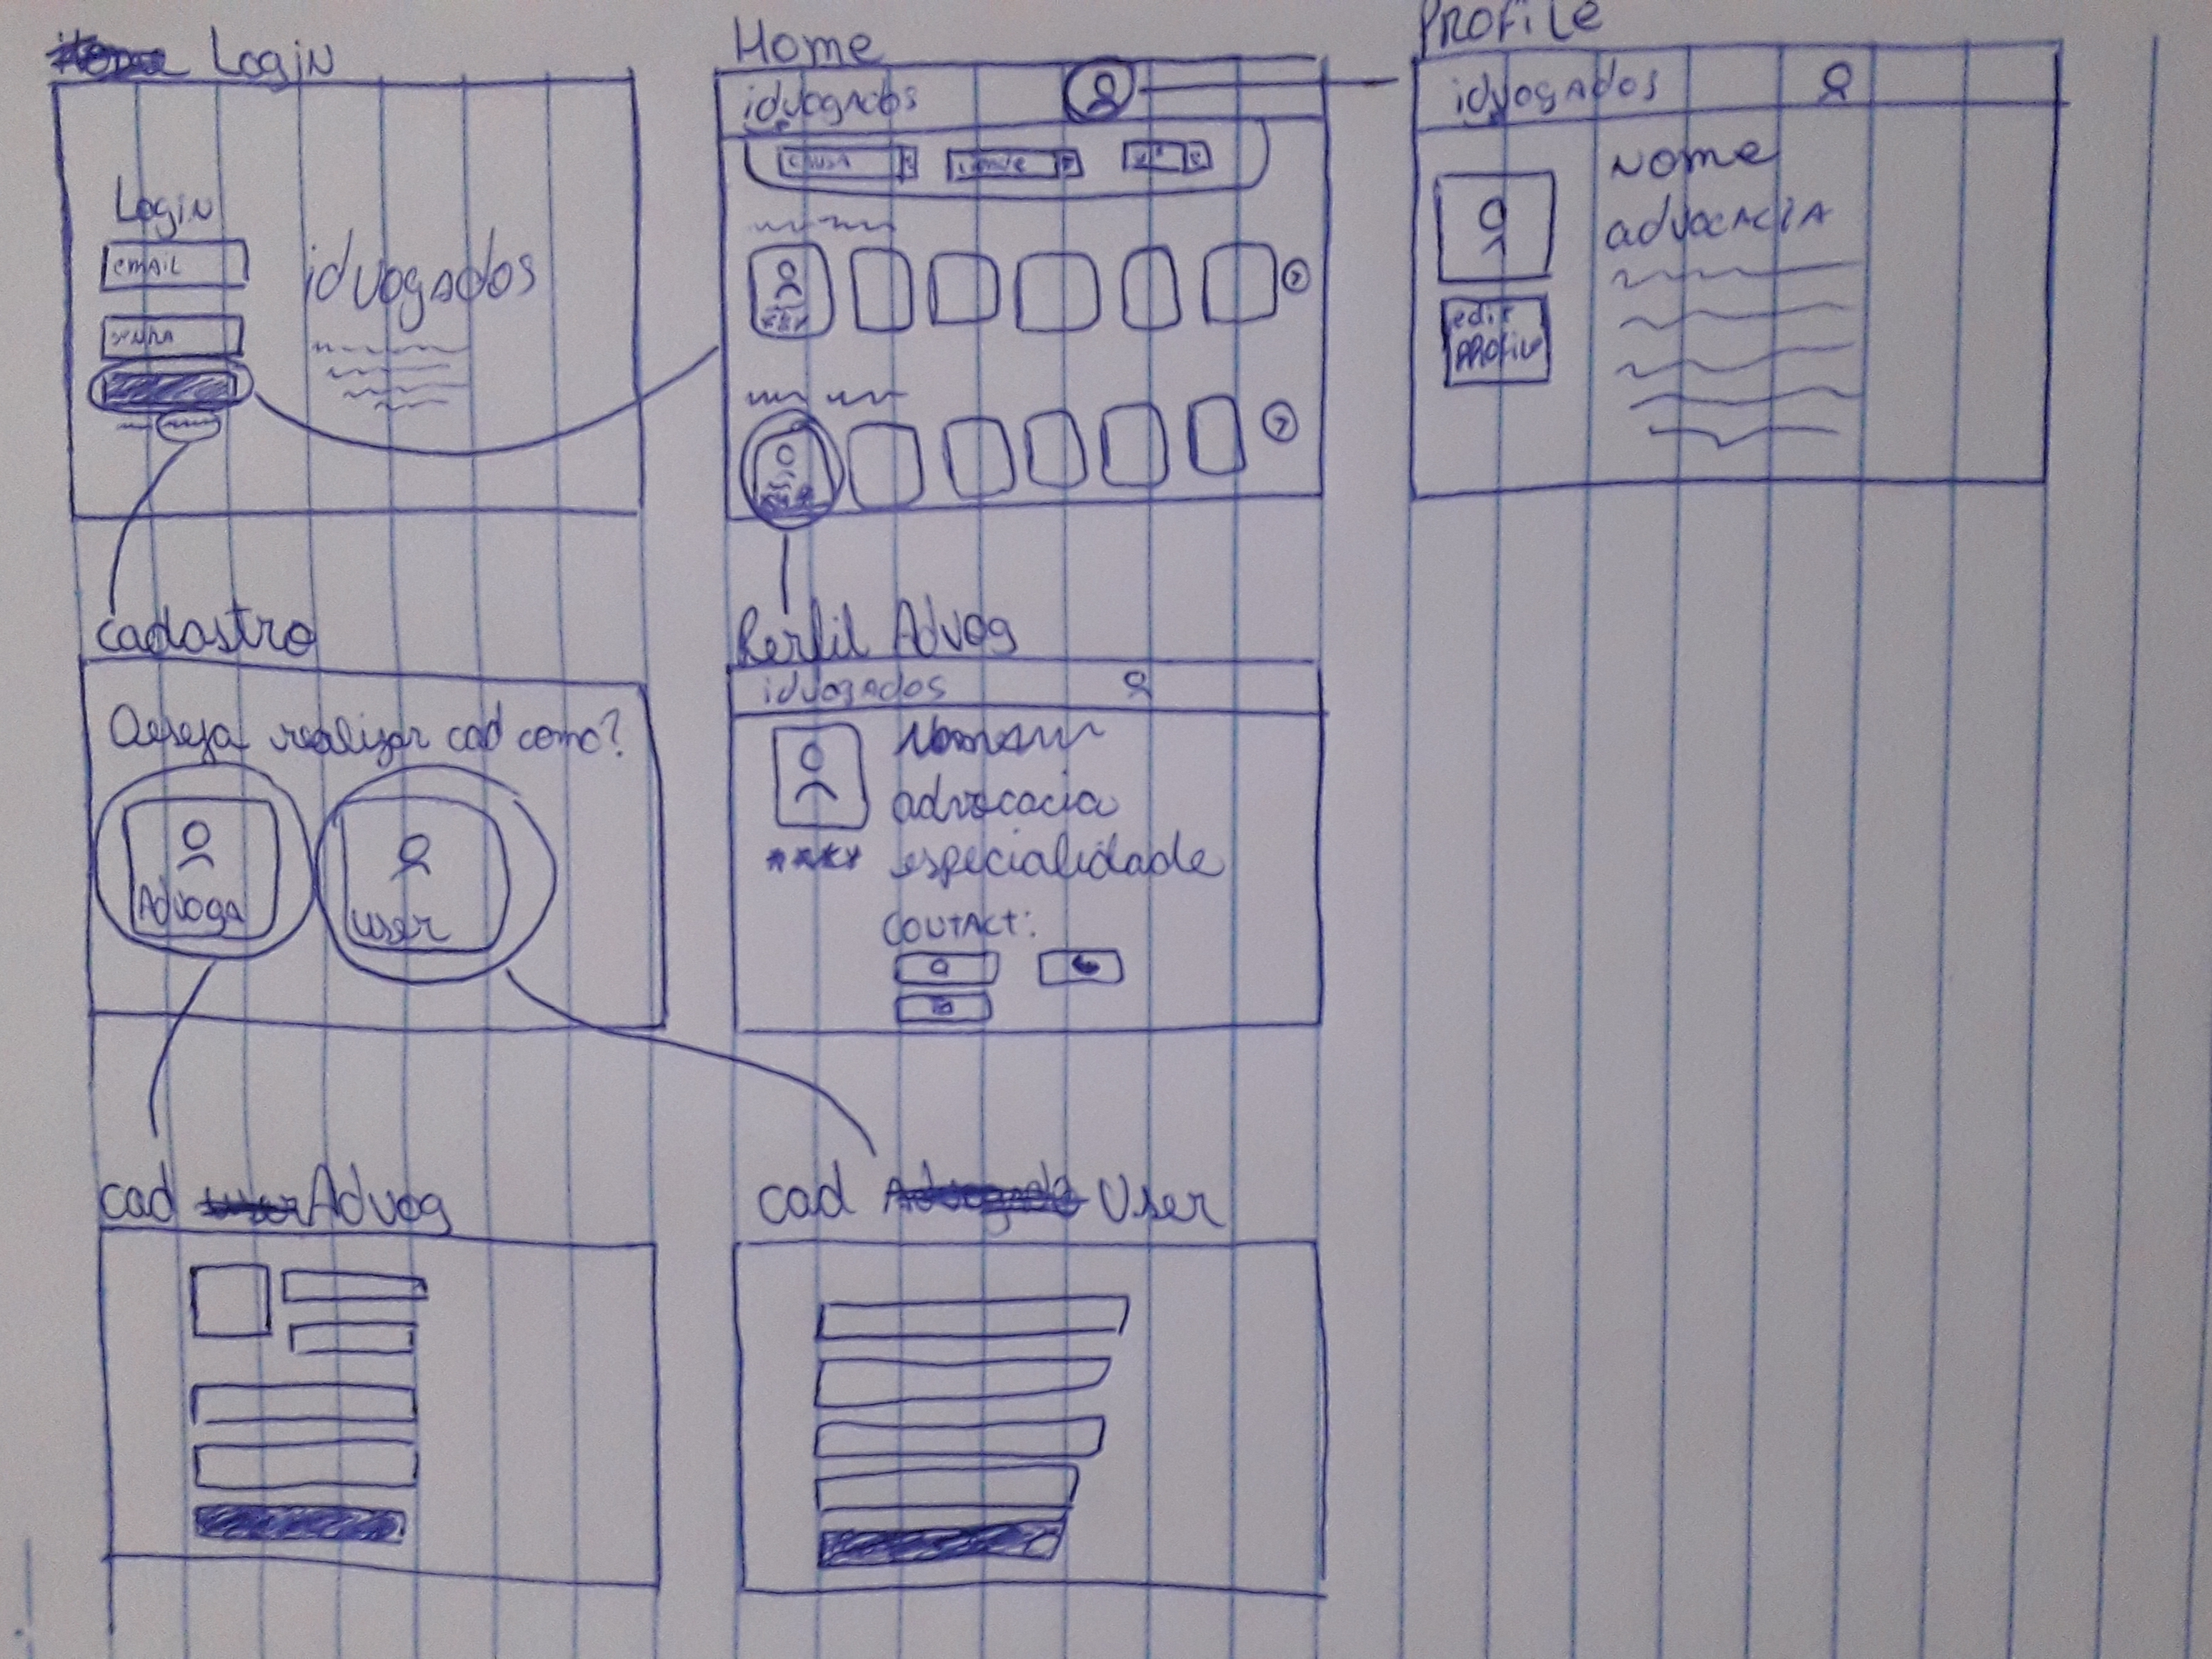 Login
Login
EMAIL
SENHA
idvogados
Home
idvogados
CAUSA
Profile
idvogados
Nome
advocacia
edit
Profile
cadastro
Deseja realizar cad como?
Advoga
user
Perfil Advog
idvogados
advocacia
especialidade
CONTACT:
cad Advog
cad User